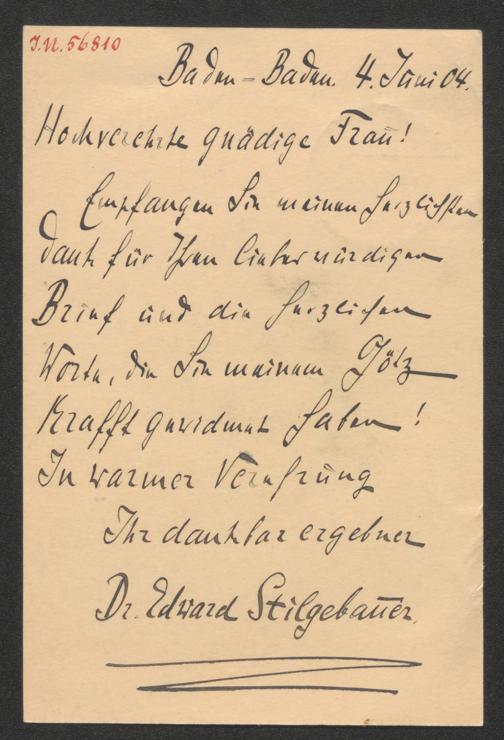 J.N. 56810
Baden-Baden. 4. Juni 04.
Hochverehrte gnädige Frau!
Empfangen Sie meinen herzlichsten
Dank für Ihren liebenswürdigen
Brief und die herzlichen
Worte, die Sie meinem Götz
Krafft gewidmet haben!
In warmer Verehrung
Ihr dankbar ergebner
Dr. Edward Stilgebauer.